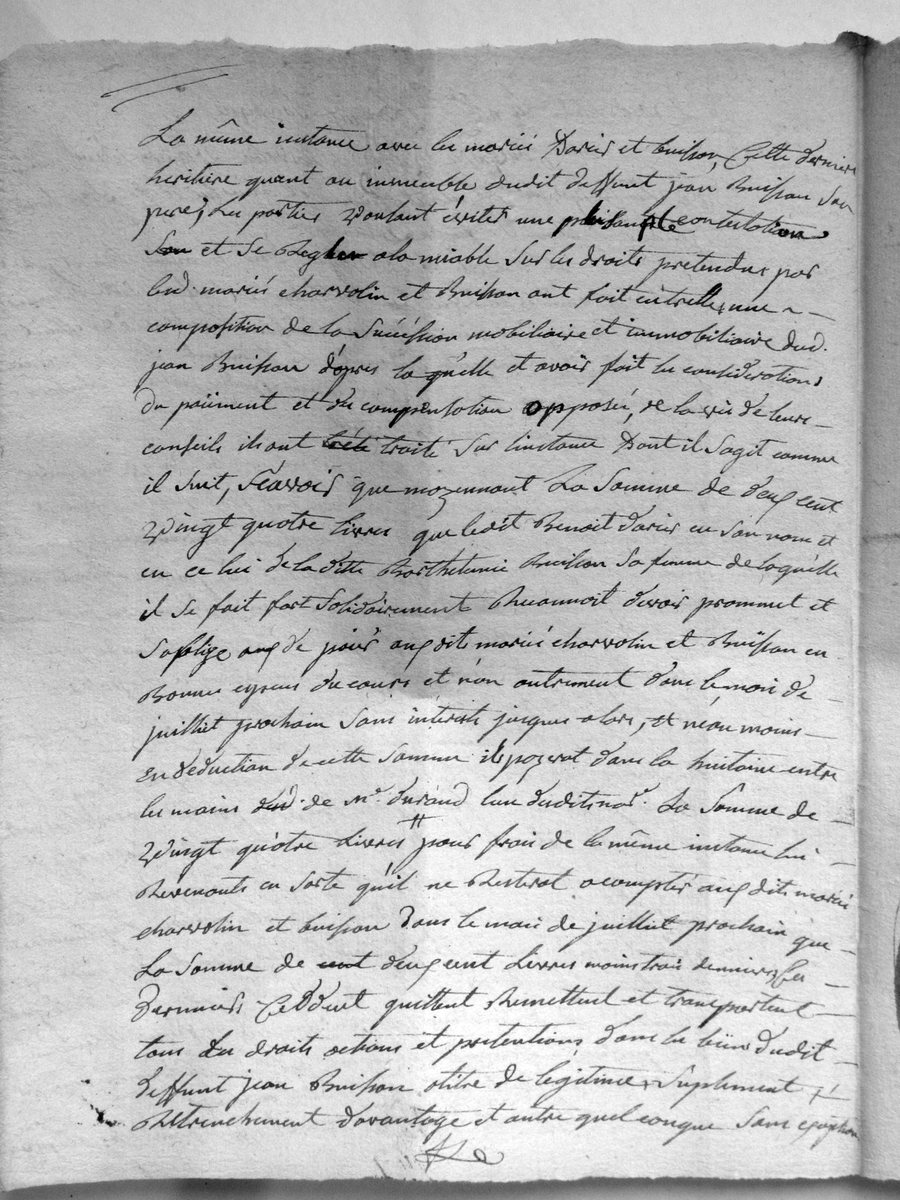 La même instance avec les mariés Darier et buisson, Cette derniere
heritiere quant au immeuble dudit deffunt jean Buisson son
pere; Les parties voulant éviter une plus ample contestation
et se Regler a la miable sur les droits pretendus par
led. mariés charvolin et Buisson ont fait entrelles une
composition de la Succéssion mobiliaire et immobiliaire dud.
jean Buisson d'apres la quelle et avoir fait les considerations
du paiiment et des compensation opposés, de la vis de leurs
conseils ils ont traité sur l'instance Dont il s'agit comme
il suit, scavoir que moyennant La somme de deux cent
Vingt quatre livres que ledit Benoit darier en son nom et
en ce lui de laditte Barthelemie Buisson sa femme de laquelle
il se fait fort solidairement Reconnoit devoir prommet et
s'oblige de payer aux dits mariés charvolin et Buisson en
Bonnes espeses du cours et non autrement dans le mois de
juillet prochain sans intérets jusques alors, et néan moins
En deduction de cette somme ils payerat dans la huitaine entre
les mains de Mr. durand l'un desdits nor. La somme de
Vingt quatre Livres pour frais de la même instance lui
Revenants en sorte qu'il ne Resterat a compter aux dits mariés
charvolin et buisson Dans le mois de juillet prochain que
La somme de deux cent Livres moins trois deniers Ces
Derniers Ceddent quittent Remettent et transportent
tous Les droits actions et pretentions dans les biens dudit
deffunt jean Buisson a titre de légitime, Suplement
Retrenchement d'avantage et autre quel conque sans exeption